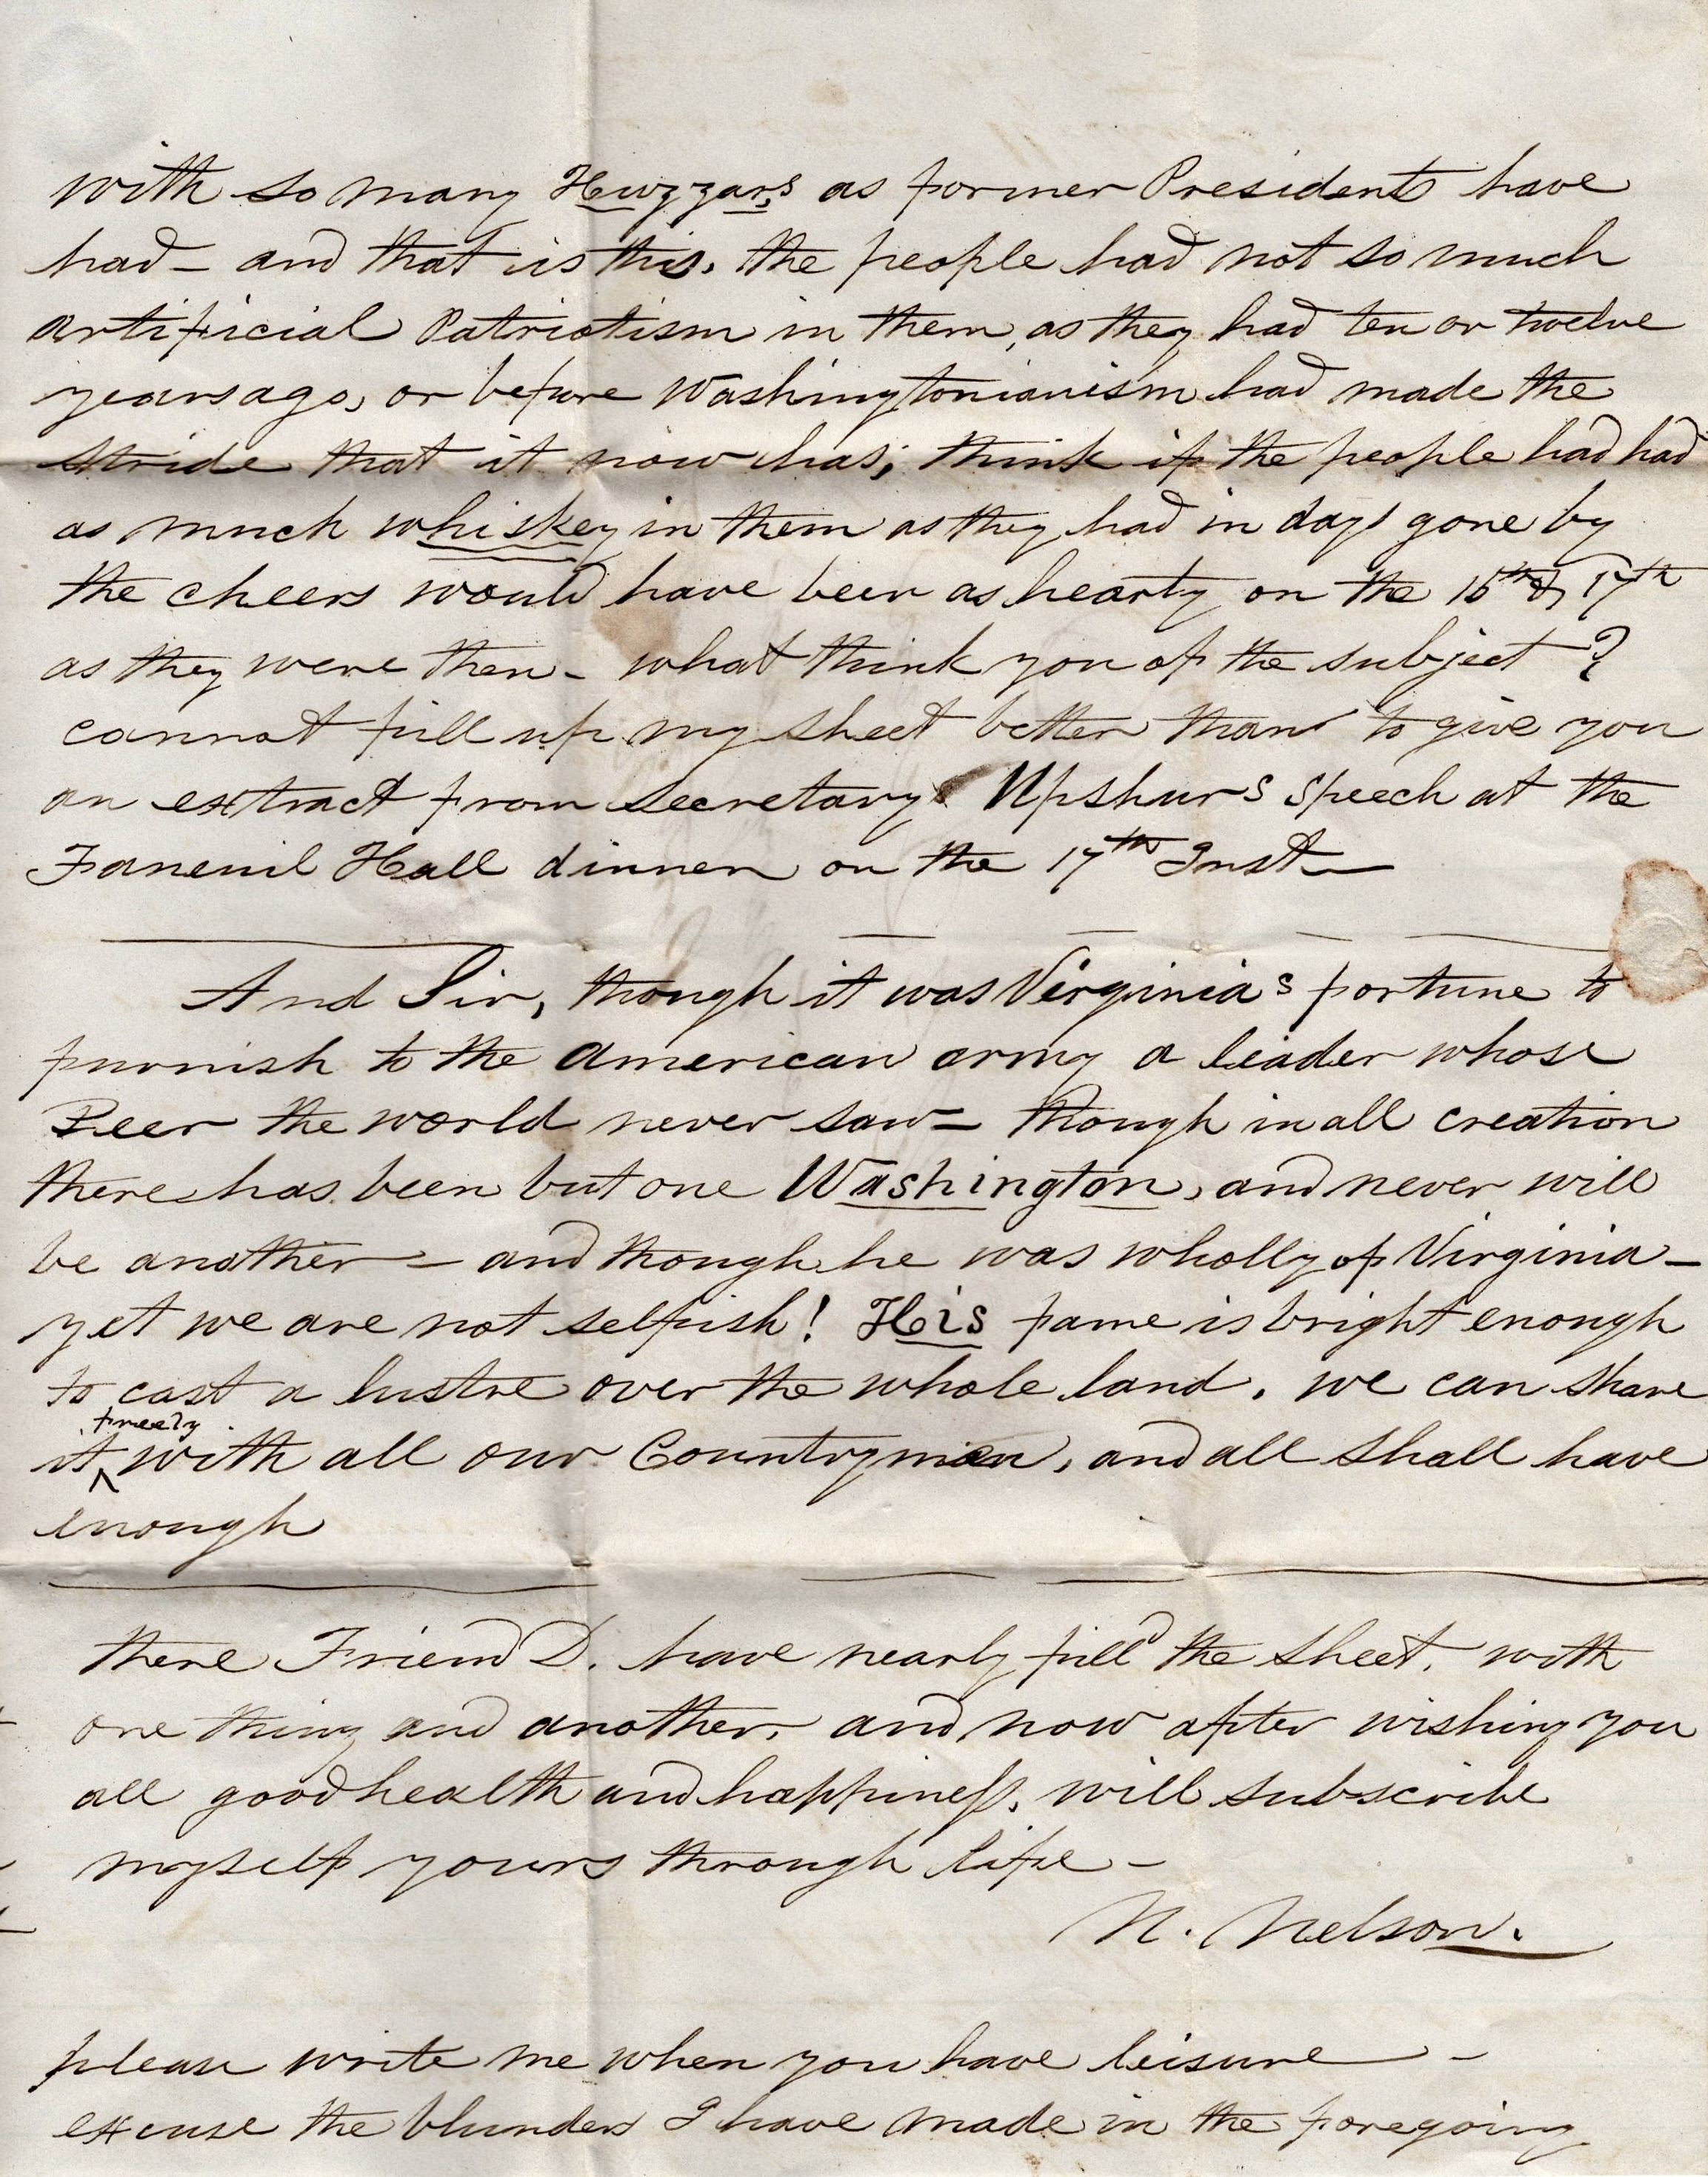 with so many Huzzars as former Presidents have
had – and that is this. the people had not so much
artificial Patriotism in them, as they had ten or twelve
years ago, or before Washingtonianism had made the
stride that it now has; think if the people had had
as much whiskey in them as they had in days gone by
the cheers would have been as hearty on the 16th & 17th
as they were then – what think you of the subject?
cannot fill up my sheet better than to give you
an extract from Secretary Upshurs speech at the
Faneuil Hall dinner on the 17th Inst –
And Sir, though it was Virginias fortune to
furnish to the American army a leader whose
Peer the world never saw – though in all creation
there has been but one Washington, and never will
be another – and though he was wholly of Virginia –
yet we are not selfish! His fame is bright enough
to cast a lustre over the whole land. we can share
it freely with all our Countrymen, and all shall have
enough
there Friend D. have nearly fill'd the sheet. with
one thing and another, and now after wishing you
all good health and happiness, will subscribe
myself yours through life –
N. Nelson.
please write me when you have leisure –
excuse the blunders I have made in the foregoing